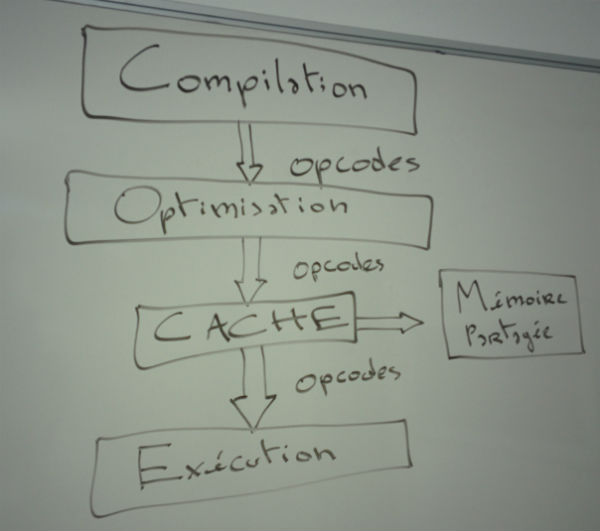 Compilation
opcodes
Optimisation
opcodes
CACHE
Mémoire
Partagée
opcodes
Exécution